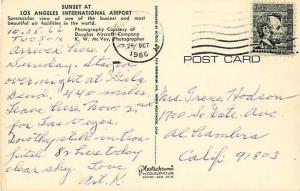 SUNSET AT
LOS ANGELES INTERNATIONAL AIRPORT
Spectacular view of one of the busiest and most
beautiful air facilities in the world.
Photography Courtesy of
Douglas Aircraft Company
K. W. McVey, Photographer
10.25.66
Tucson
Arrived here
Sunday. Stayed
overnight at Gila
Bend. 440 miles
Leave here Nov 2nd
for Las Vegas.
Dorothy still in hos-
pital. 85 here today
clear sky. Love
Art. K.
OCT
1966
POST CARD
Mrs. Irene Hodson
1700 So Date Ave
Alhambra
Calif. 91803
Plastichrome